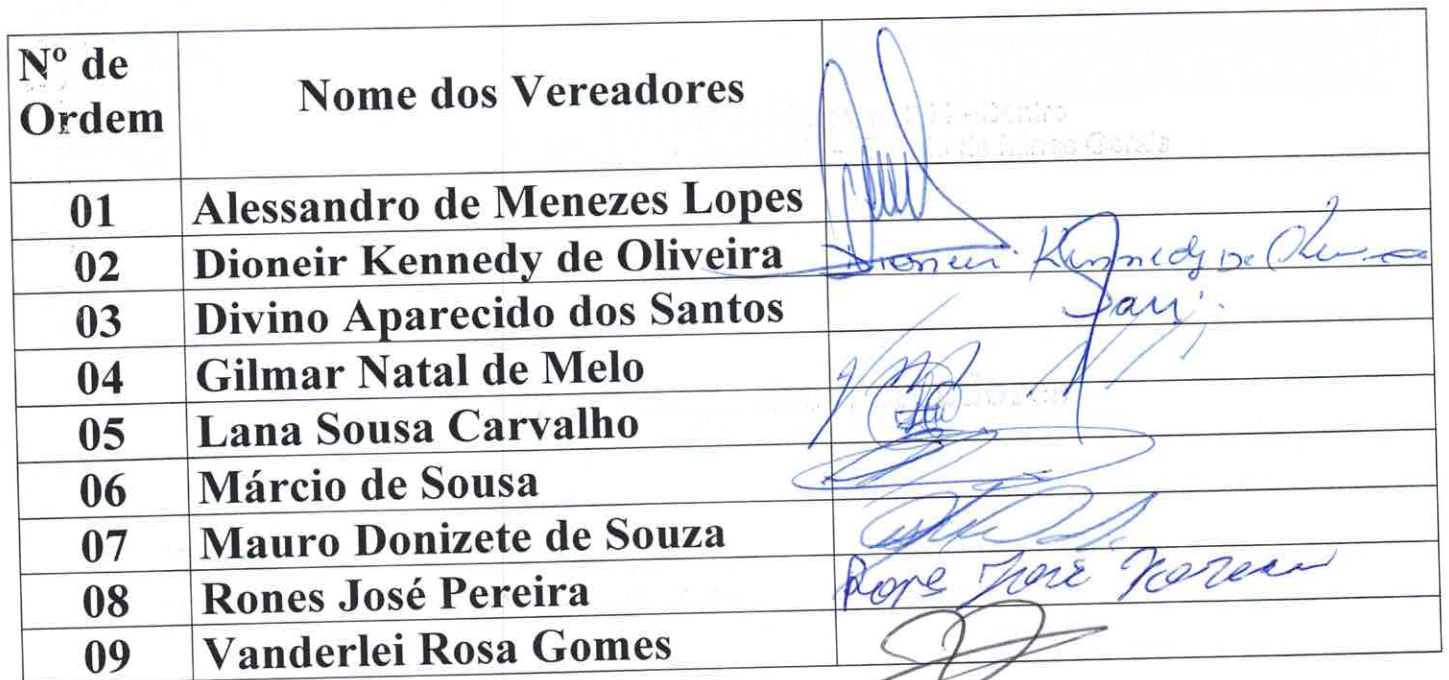 Nº de
Ordem
Nome dos Vereadores
01 Alessandro de Menezes Lopes
02 Dioneir Kennedy de Oliveira Dioneir Kennedy De
03 Divino Aparecido dos Santos
04 Gilmar Natal de Melo
05 Lana Sousa Carvalho
06 Márcio de Sousa
07 Mauro Donizete de Souza
08 Rones José Pereira
09 Vanderlei Rosa Gomes